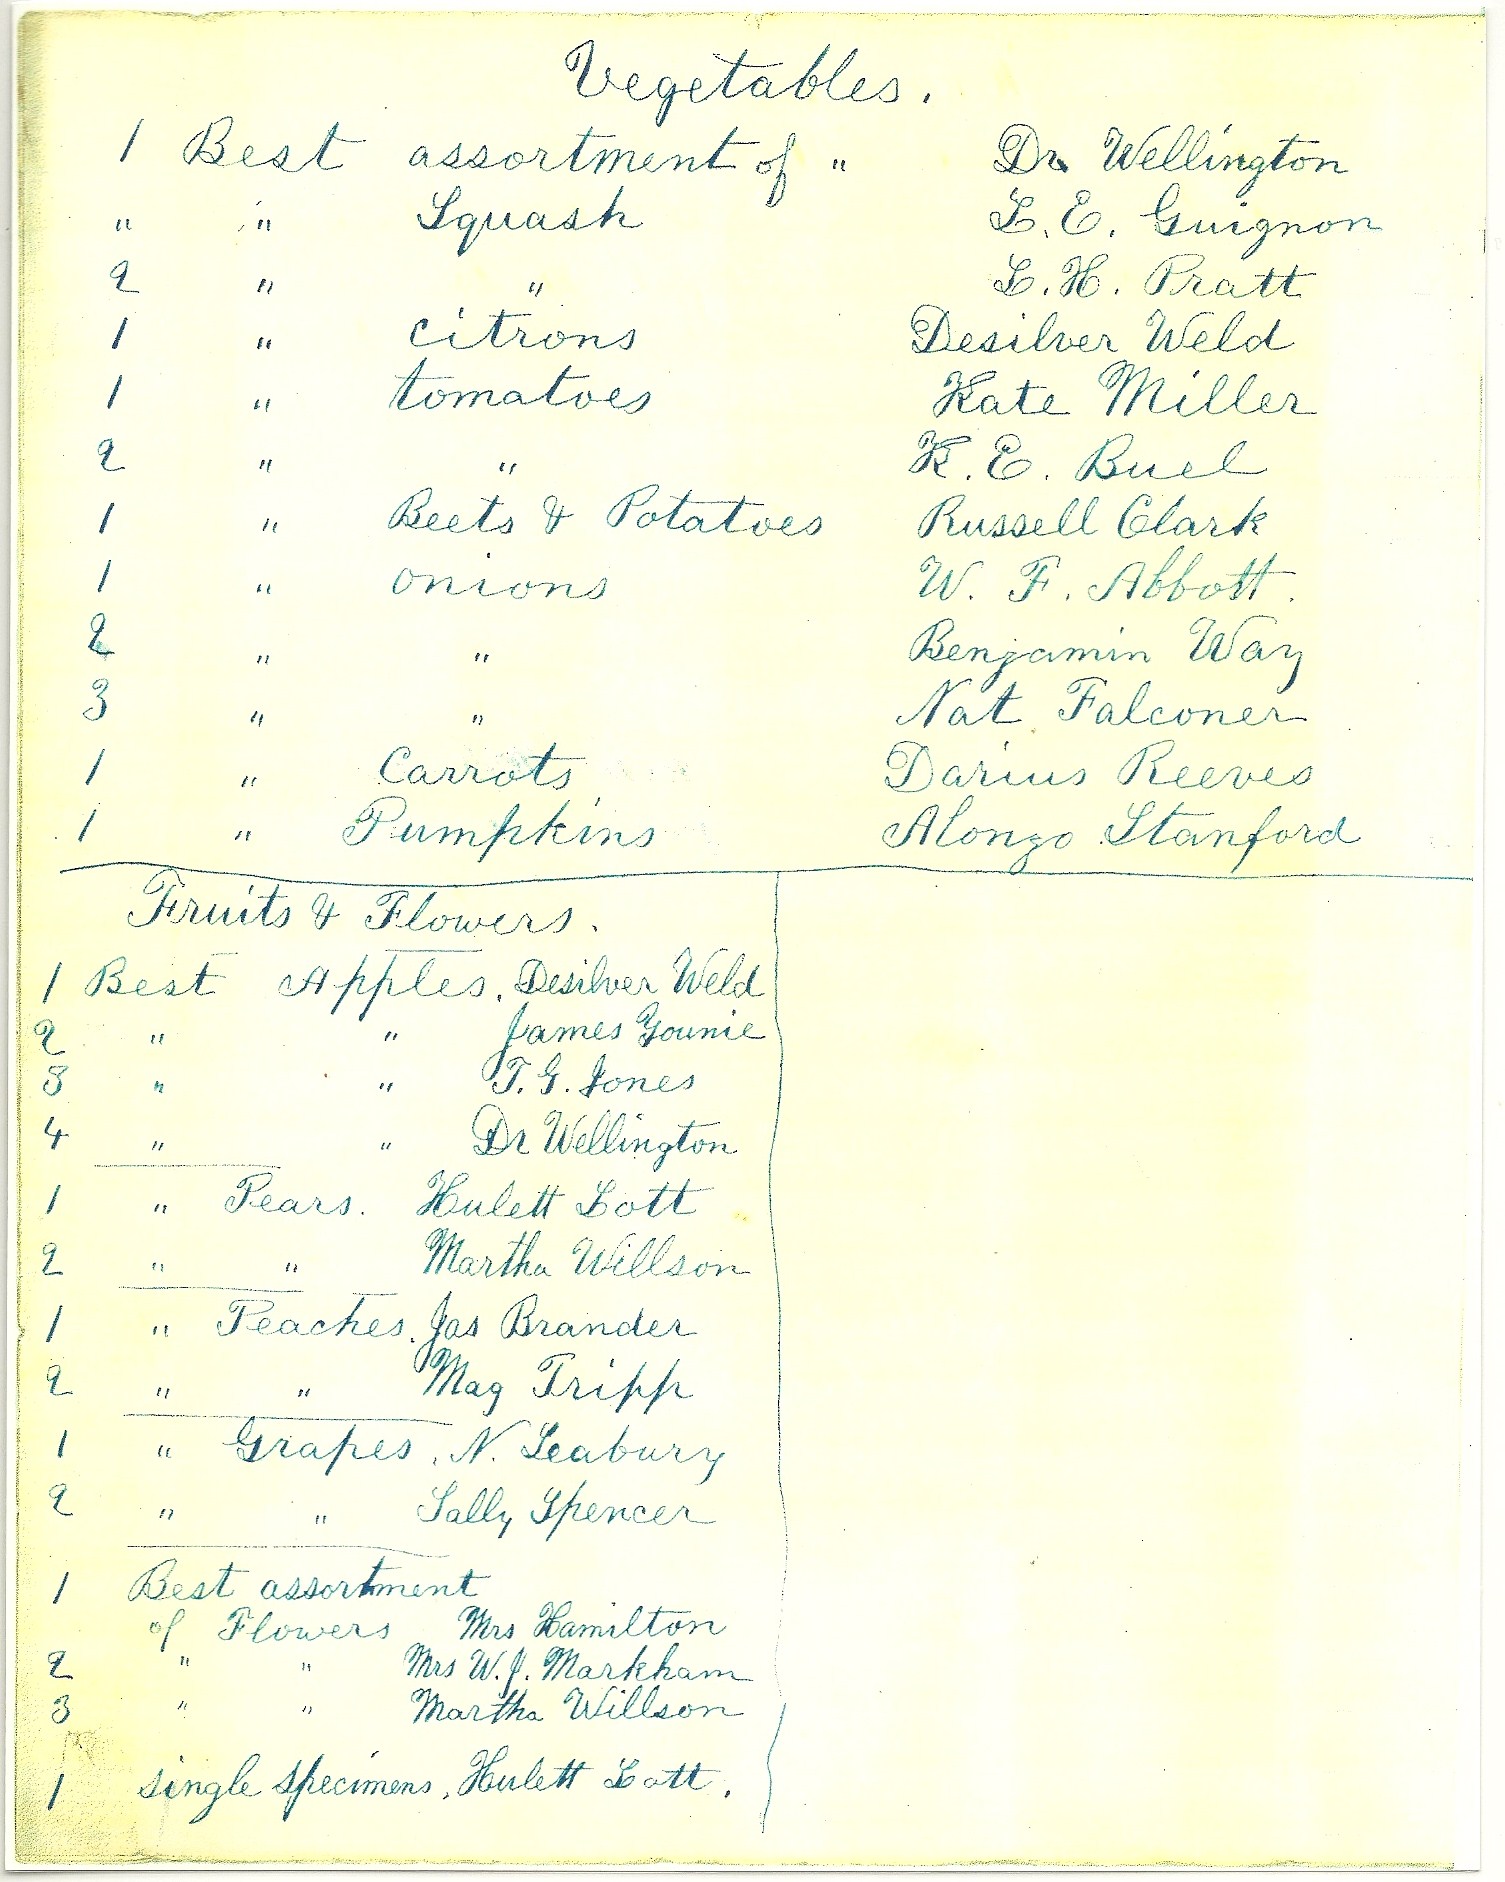 Vegetables.
1 Best assortment of " Dr Wellington
" " Squash L. E. Guignon
2 " " L. H. Pratt
1 " citrons Desilver Weld
1 " tomatoes Kate Miller
2 " " K. E. Buel
1 " Beets & Potatoes Russell Clark
1 " onions W. F. Abbott.
2 " " Benjamin Way
3 " " Nat Falconer
1 " Carrots Darius Reeves
1 " Pumpkins Alongo Stanford
Fruits & Flowers.
1 Best Apples, Desilver Weld
2 " " James Younie
3 " " T. G. Jones
4 " " Dr Wellington
1 " Pears. Hulett Lott
2 " " Martha Willson
1 " Peaches. Jas Brander
2 " " Mag Tripp
1 " Grapes, N. Seabury
2 " " Sally Spencer
1 Best assortment
of Flowers Mrs Hamilton
2 " " Mrs W. J. Markham
3 " " Martha Willson
1 single specimens, Hulett Lott.